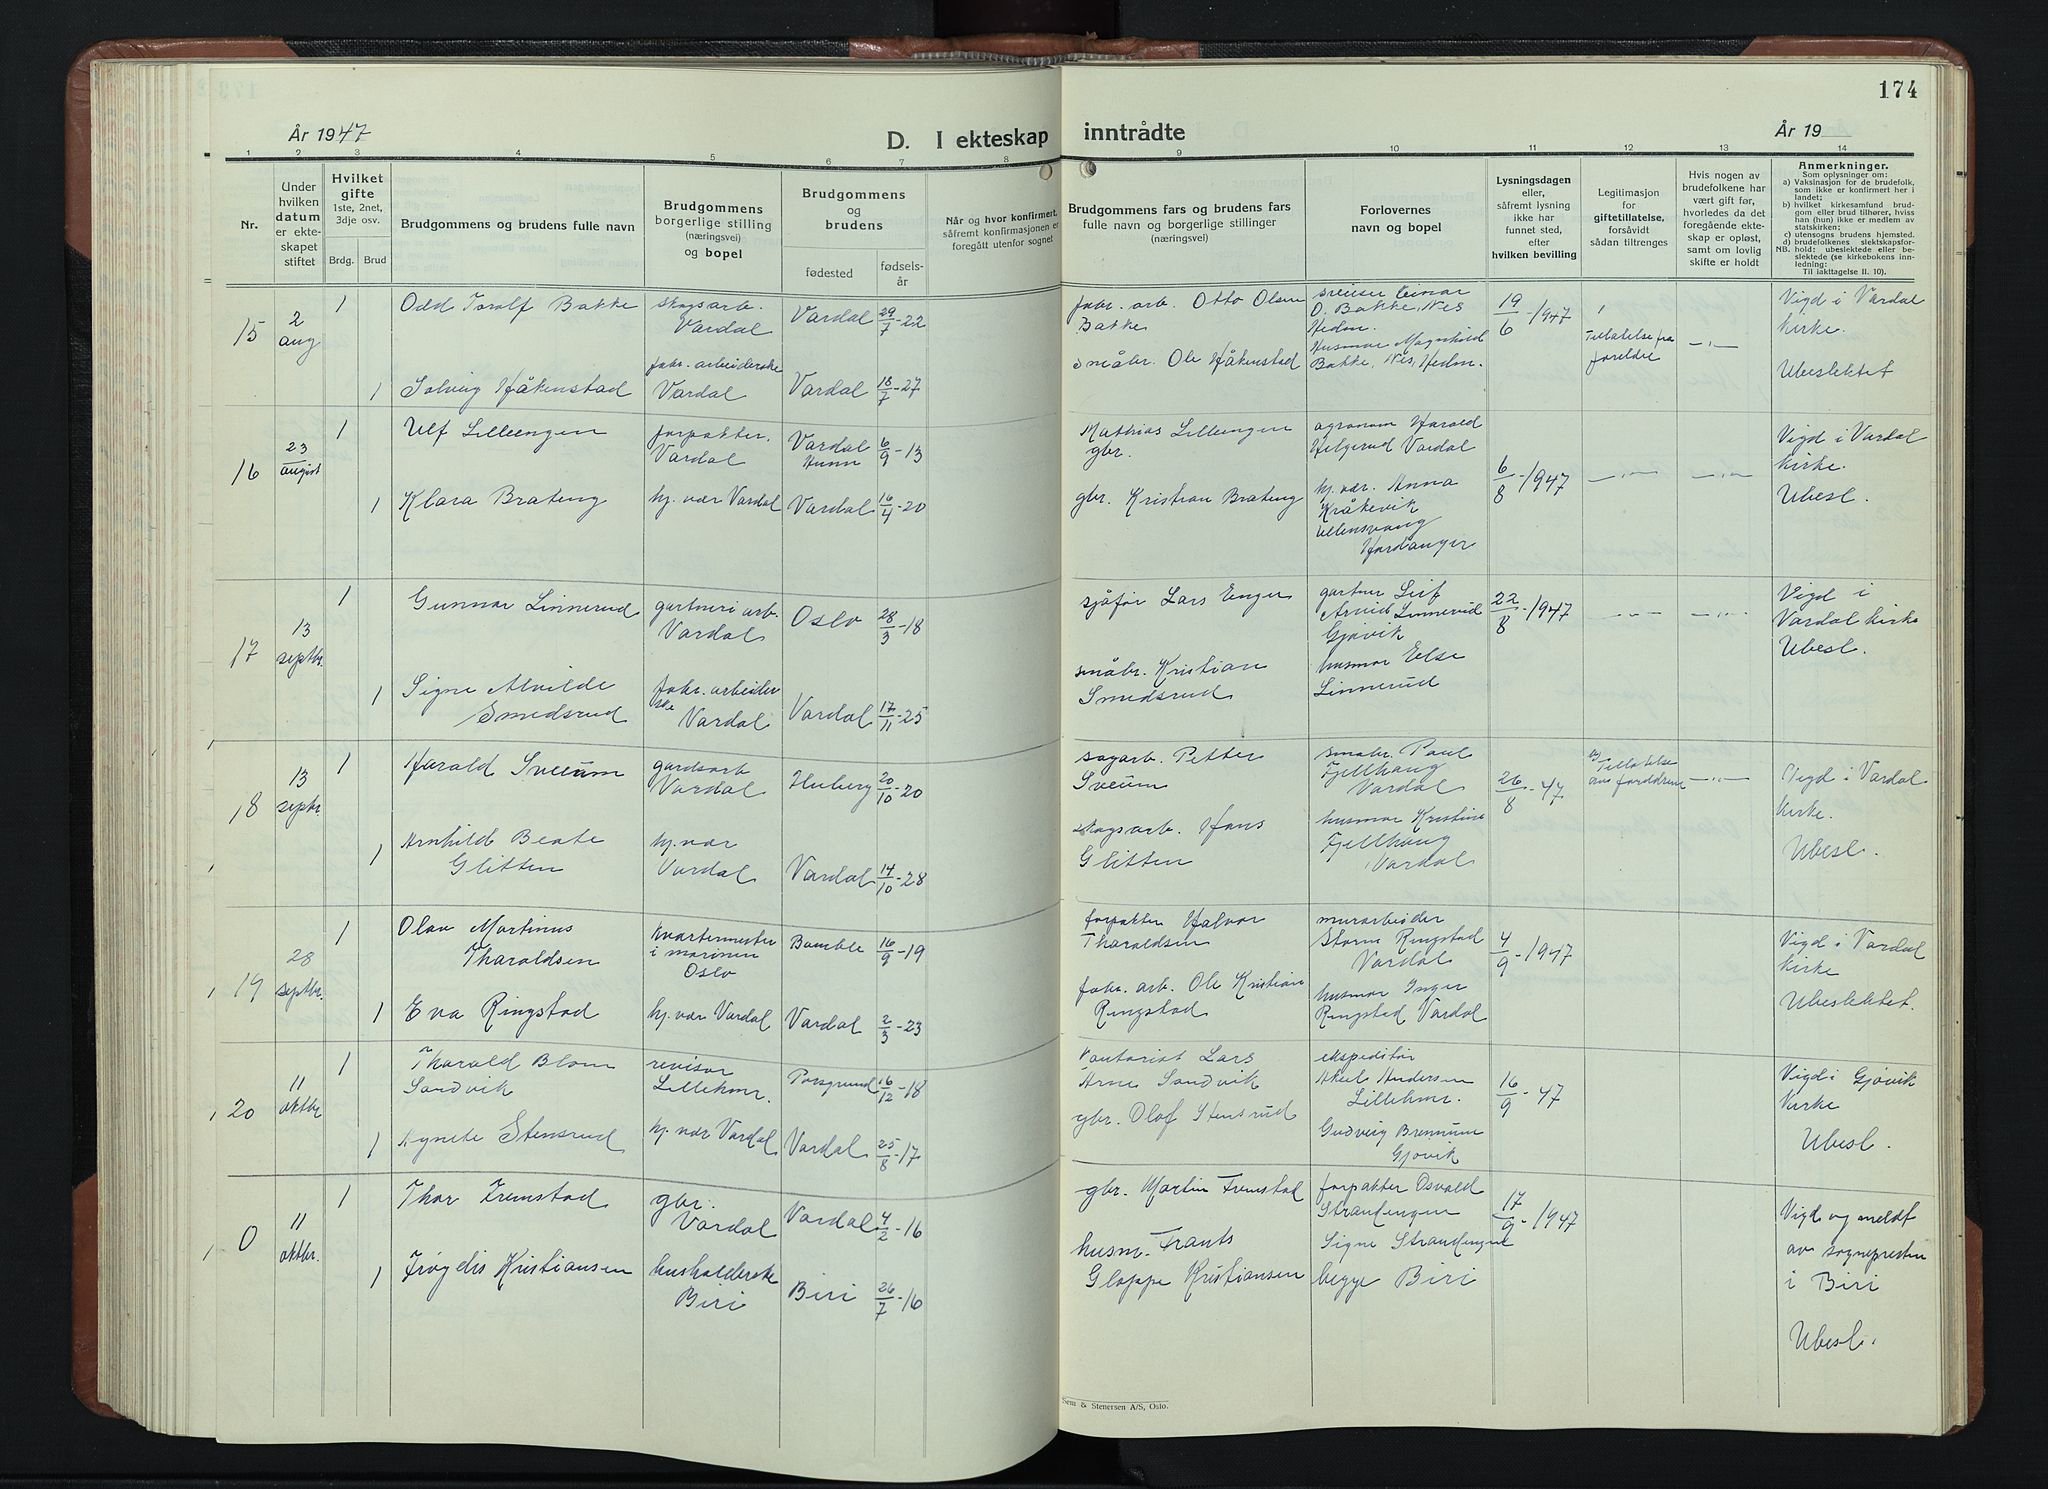 174
År 1947
D. I ekteskap inntrådte
År 19
1 2 3 4 5 6 7 8 9 10 11 12 13 14
Nr.
Under
hvilken
datum
er ekte-
skapet
stiftet
Hvilket
gifte
1ste, 2net,
3dje osv.
Brdg. Brud
Brudgommens og brudens fulle navn
Brudgommens
borgerlige stilling
(næringsvei)
og bopel
Brudgommens
og
brudens
fødested
fødsels-
år
Når og hvor konfirmert,
såfremt konfirmasjonen er
foregått utenfor sognet
Brudgommens fars og brudens fars
fulle navn og borgerlige stillinger
(næringsvei)
Forlovernes
navn og bopel
Lysningsdagen
eller,
såfremt lysning
ikke har
funnet sted,
efter
hvilken bevilling
Legitimasjon
for
giftetillatelse,
forsåvidt
sådan tiltrenges
Hvis nogen av
brudefolkene har
vært gift før,
hvorledes da det
foregående ekte-
skap er opløst,
samt om lovlig
skifte er holdt
Anmerkninger.
Som oplysninger om:
a) Vaksinasjon for de brudefolk,
som ikke er konfirmert her i
landet;
b) hvilket kirkesamfund brud-
gom eller brud tilhører, hviss
han (hun) ikke er medlem av
statskirken;
c) utensogns brudens hjemsted.
d) brudefolkenes slektskapsfor-
hold: ubeslektede eller be-
slektede (se kirkebokens inn-
ledning:
NB.
Til iakttagelse II. 10).
15
2
aug
1
Odd Toralf Bakke
skogsarb.
Vardal
Vardal
29/7-22
1
Solveig Håkenstad
fabr. arbeiderske
Vardal
Vardal
18/7-27
fabr. arb. Otto Olsen
Bakke
småbr. Ole Håkenstad
O. Bakke, Nes
Hedm.
Husmor Magnhild
Bakke, Nes, Hedm.
19/6-1947
Tillatelse fra
foreldre
— " —
Vigd i Vardal
kirke.
Ubeslektet
16
23
august
1
Ulf Lilleengen
forpakter.
Vardal
Vardal
Hunn
6/9-13
1
Klara Brateng
hj. vær Vardal
Vardal
16/4-20
Mathias Lilleengen
gbr.
gbr. Kristian Brateng
agronom Harald
Helgerud Vardal
hj. vær. Anna
Kråkevik
Ullensvang
Hardanger
6/8-1947
— " —
— " —
Vigd i Vardal
kirke.
Ubesl.
17
13
septbr.
1
Gunnar Linnerud
gartneri arb.
Vardal
Oslo
28/3-18
1
Signe Alvilde
Smedsrud
fabr. arbeider
ske Vardal
Vardal
17/11-25
sjåfør Lars Enger
småbr. Kristian
Smedsrud
gartner
Arvid Linnerud
Gjøvik
husmor Else
Linnerud
22/8-1947
— " —
— " —
Vigd i
Vardal kirke
Ubesl.
18
13
septbr.
1
Harald Sveum
gardsarb
Vardal
20/10-20
1
Arnhild Beate
Glitten
hj. vær
Vardal
Vardal
14/10-28
sagarb. Petter
Sveum
skogsarb. Hans
Glitten
småbr. Paul
Fjellhaug
Vardal
husmor Kristine
Fjellhaug
Vardal
26/8-47
Tillatelse
av foreldrene
— " —
Vigd i Vardal
kirke.
Ubesl.
19
28
septbr.
1
Olav Martinus
Tharaldsen
kvartermester
i marinen
Oslo
Bamble
16/9-19
1
Eva Ringstad
hj. vær Vardal
Vardal
2/3-23
forpakter Halvor
Tharaldsen
fabr. arb. Ole Kristian
Ringstad
murarbeider
Storm Ringstad
Vardal
husmor Inger
Ringstad Vardal
4/9-1947
Vigd i Vardal
kirke
Ubeslektet.
20
11
oktbr
1
Tharald Blom
Sandvik
revisor
Lillehmr.
Porsgrund
16/12-18
1
Agnete Stensrud
hj. vær Vardal
Vardal
25/8-17
kontorist Lars
Arne Sandvik
gbr. Olaf Stensrud
ekspeditør
Aksel Andersen
Lillehmr.
Gudveig Brennum
Gjøvik
16/9-47
Vigd i Gjøvik
kirke
Ubesl.
0
11
oktbr.
1
Thor Fremstad
gbr.
Vardal
Vardal
4/2-16
1
Frøydis Kristiansen
husholderske
Biri
Biri
26/7-16
gbr. Martin Fremstad
husm. Frants
Gloppe Kristiansen
forpakter Osvald
Strandengen
Signe Strandengen
begge Biri
17/9-1947
Vigd og meldt
av sognepresten
i Biri
Ubesl.
Sem & Stenersen A/S, Oslo.